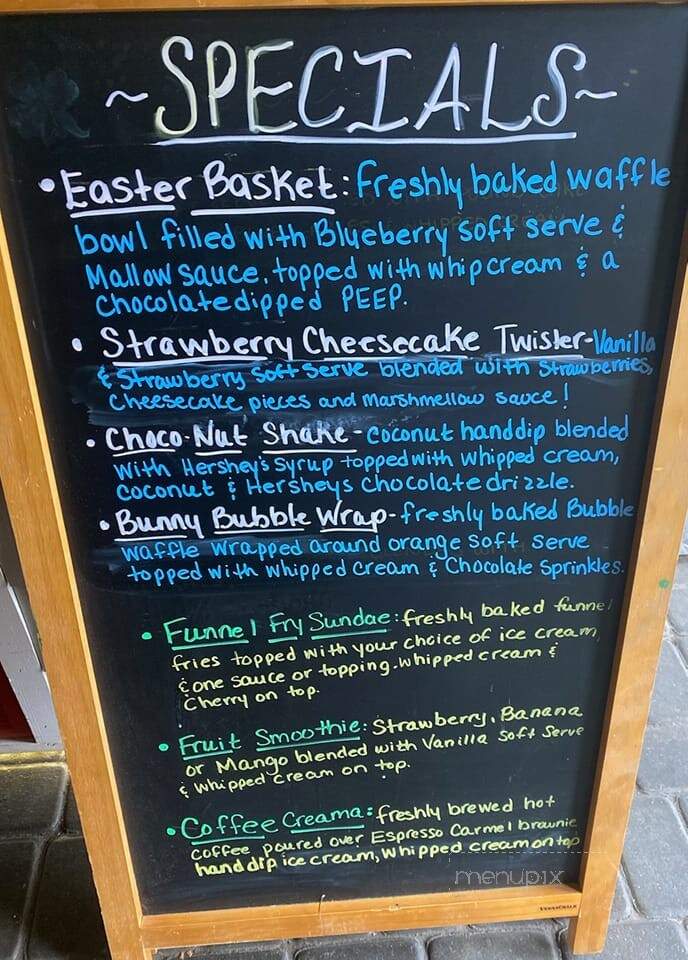 ~SPECIALS~
• Easter Basket: Freshly baked waffle
bowl filled with Blueberry soft serve &
Mallow sauce, topped with whipcream & a
Chocolate dipped PEEP.
• Strawberry Cheesecake Twister-Vanilla
& Strawberry soft serve blended with strawberries,
Cheesecake pieces and marshmellow sauce!
• Choco-Nut Shake-Coconut handdip blended
with Hershey's syrup topped with whipped cream,
coconut & Hersheys chocolate drizzle.
• Bunny Bubble Wrap-freshly baked Bubble
waffle wrapped around orange soft serve
topped with whipped cream & Chocolate Sprinkles.
• Funnel Fry Sundae: freshly baked funnel
fries topped with your choice of ice cream,
& one sauce or topping. whipped cream &
Cherry on top.
• Fruit Smoothie: Strawberry, Banana
or Mango blended with Vanilla Soft Serve
& whipped cream on top.
• Coffee Creama: freshly brewed hot
coffee poured over Espresso Carmel brownie
handdip ice cream, whipped cream on top
menupix
VERSACHALK